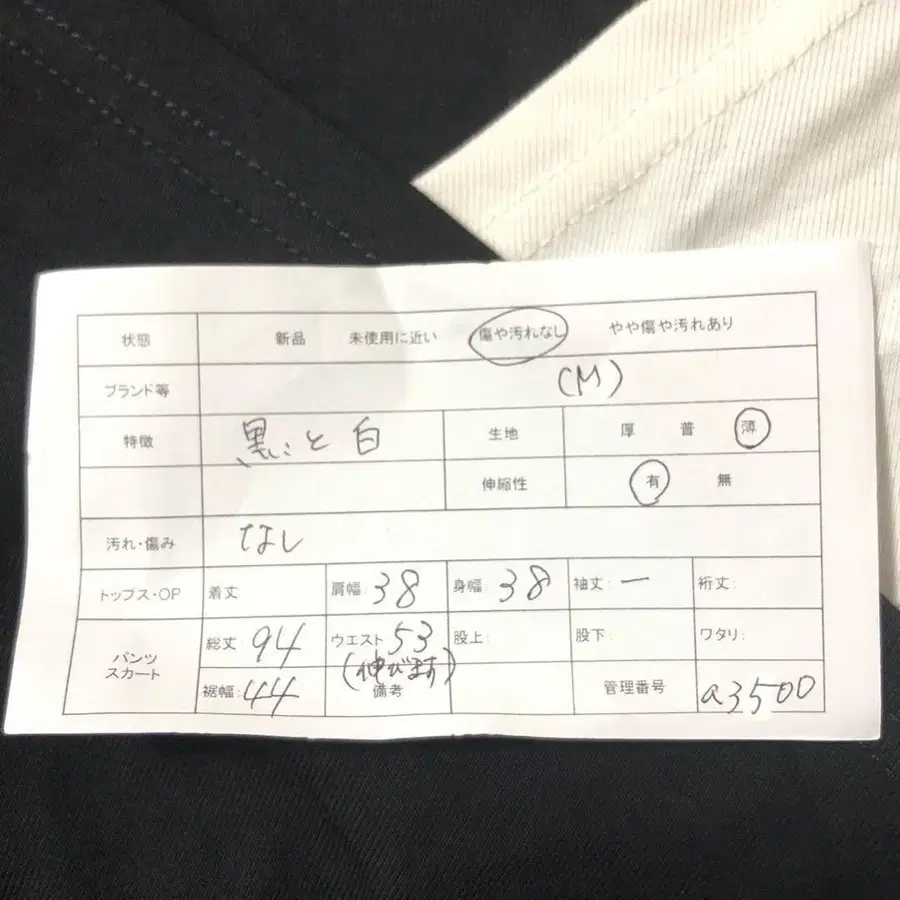 状態 新品 未使用に近い 傷や汚れなし やや傷や汚れあり
ブランド等 (M)
特徴 黒と白 生地 厚 普 薄
伸縮性 有 無
汚れ・傷み なし
トップス・OP 着丈 肩幅: 38 身幅: 38 袖丈: ー 裄丈:
パンツ スカート 総丈: 94 ウエスト 53 股上: 股下: ワタリ:
(伸びます)
裾幅: 44 備考 管理番号 a3500